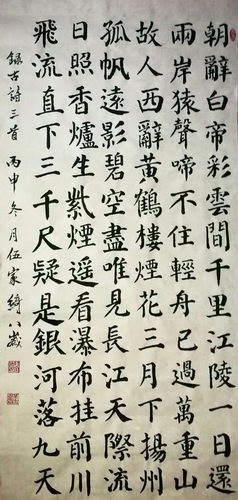 朝辭白帝彩雲間千里江陵一日還
兩岸猿聲啼不住輕舟已過萬重山
故人西辭黃鶴樓煙花三月下揚州
孤帆遠影碧空盡唯見長江天際流
日照香爐生紫煙遥看瀑布挂前川
飛流直下三千尺疑是銀河落九天
錄古詩三首 丙申冬月伍家綺八歲